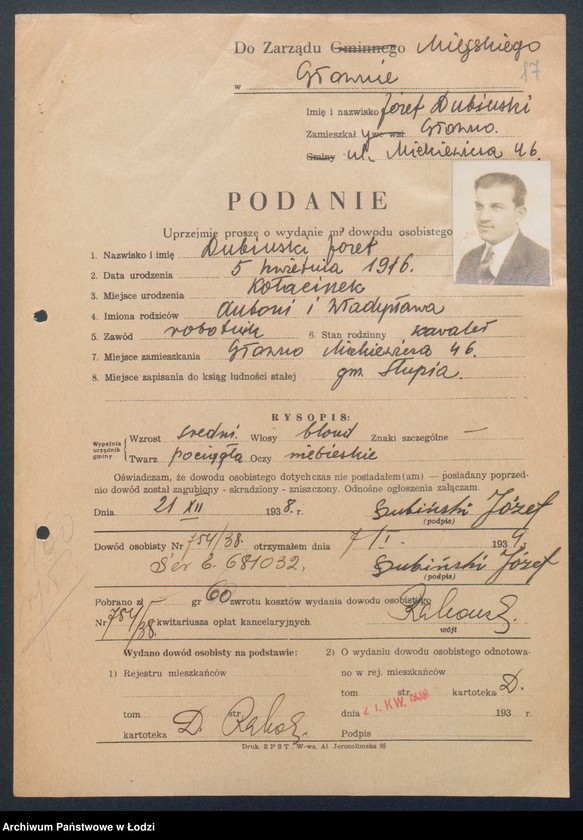 Do Zarządu Gminnego Miejskiego
w Głownie
17
Imię i nazwisko Józef Dubiński
Zamieszkał we wsi Głowno.
Gminy ul. Mickiewicza 46.
PODANIE
Uprzejmie proszę o wydanie mi dowodu osobistego
1. Nazwisko i imię Dubiński Józef
2. Data urodzenia 5 kwietnia 1916.
3. Miejsce urodzenia Kołacinek
4. Imiona rodziców Antoni i Władysława
5. Zawód robotnik 6. Stan rodzinny kawaler
7. Miejsce zamieszkania Głowno Mickiewicza 46.
8. Miejsce zapisania do ksiąg ludności stałej gm. Słupia.
RYSOPIS:
Wypełnia urzędnik gminy
Wzrost średni. Włosy blond Znaki szczególne —
Twarz pociągła Oczy niebieskie
Oświadczam, że dowodu osobistego dotychczas nie posiadałem(am) — posiadany poprzed-
nio dowód został zagubiony - skradziony - zniszczony. Odnośne ogłoszenia załączam.
Dnia 21 XII 1938. r. Dubiński Józef
(podpis)
Dowód osobisty Nr 754/38. otrzymałem dnia 7/I. 1939.
Ser. E. 681032. Dubiński Józef
(podpis)
Pobrano zł — gr 60 zwrotu kosztów wydania dowodu osobistego
Nr 754/38. kwitariusza opłat kancelaryjnych.
wójt
Wydano dowód osobisty na podstawie: 2) O wydaniu dowodu osobistego odnotowa-
1) Rejestru mieszkańców no w rej. mieszkańców
tom str. kartoteka D.
tom str. dnia 193 r.
kartoteka D. Podpis
Druk. 2 P S T. W-wa, Al Jerozolimska
Archiwum Państwowe w Łodzi